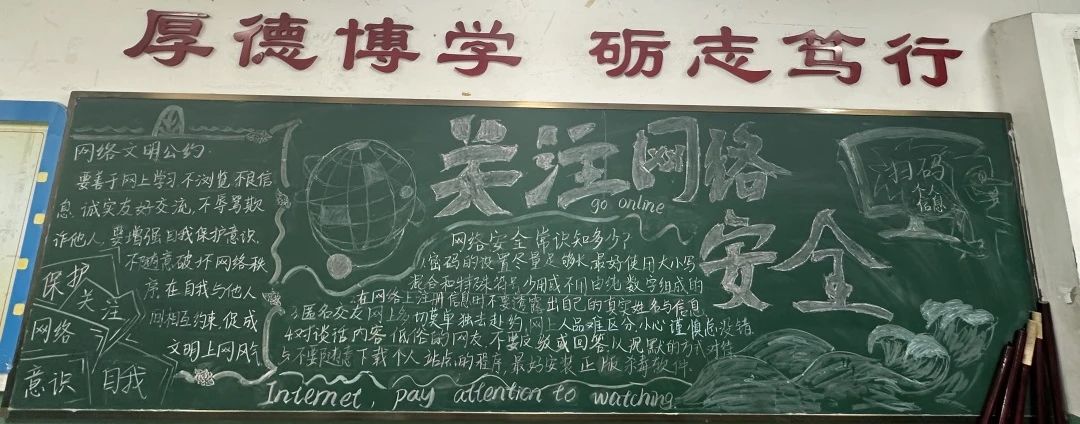 厚德博学 砺志笃行
网络文明公约.
要善于网上学习,不浏览不良信
息.诚实友好交流,不辱骂欺
诈他人,要增强自我保护意识.
不随意破坏网络秩
序,在自我与他人
间相互约束,促成
文明上网风气
保护
关注
网络
意识
自我
关注网络
go online
安全
扫码
个人
信息
网络安全常识知多少?
密码的设置尽量足够长,最好使用大小写
混合和特殊符号,少用或不用由纯数字组成的
在网络上注册信息时不要透露出自己的真实姓名与信息
3匿名交友网上多,切莫单独去赴约,网上人品难区分,小心谨慎总没错
4对谈话内容低俗的网友,不要反驳或回答,以沉默的方式对待
不要随意下载个人站点的程序,最好安装正版杀毒软件.
Internet, pay attention to watching.